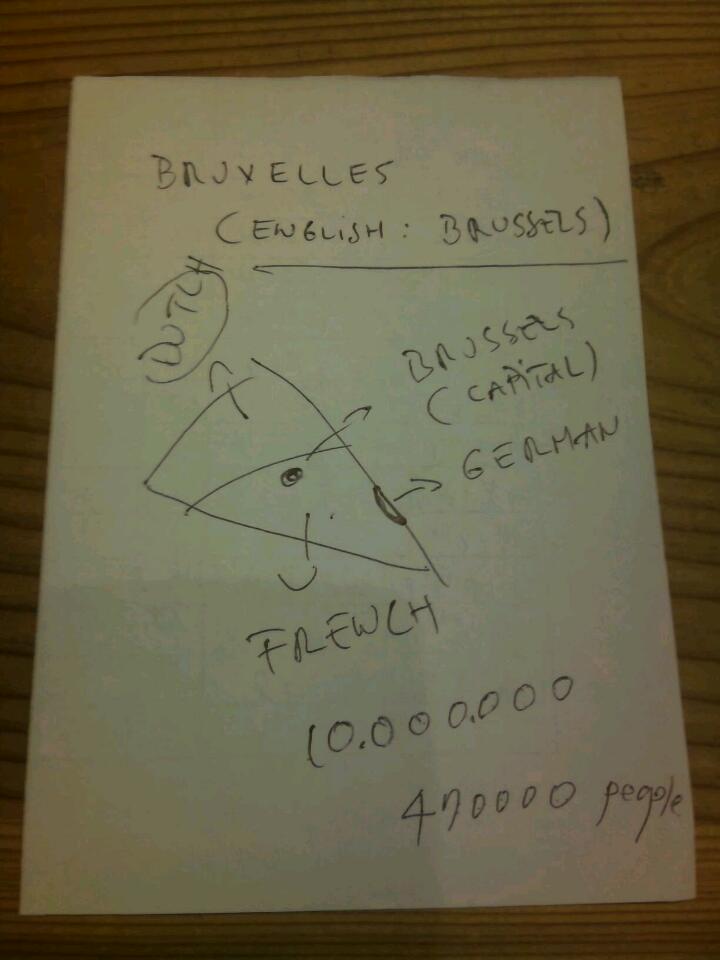 BRUXELLES
(ENGLISH: BRUSSELS)
DUTCH
BRUSSELS
(CAPITAL)
GERMAN
FRENCH
10.000.000
470000 people